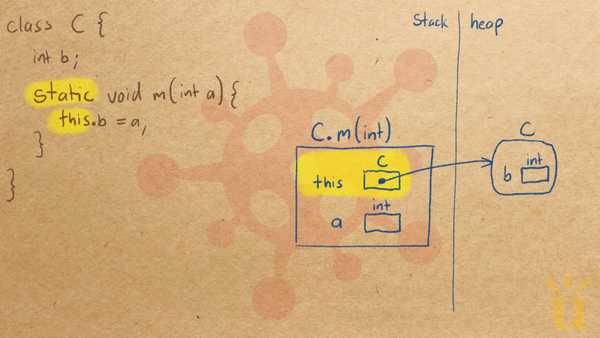 class C {
int b;
static void m(int a) {
this.b = a,
}
}
Stack heap
C.m(int)
C
this
int
a
C
int
b
u